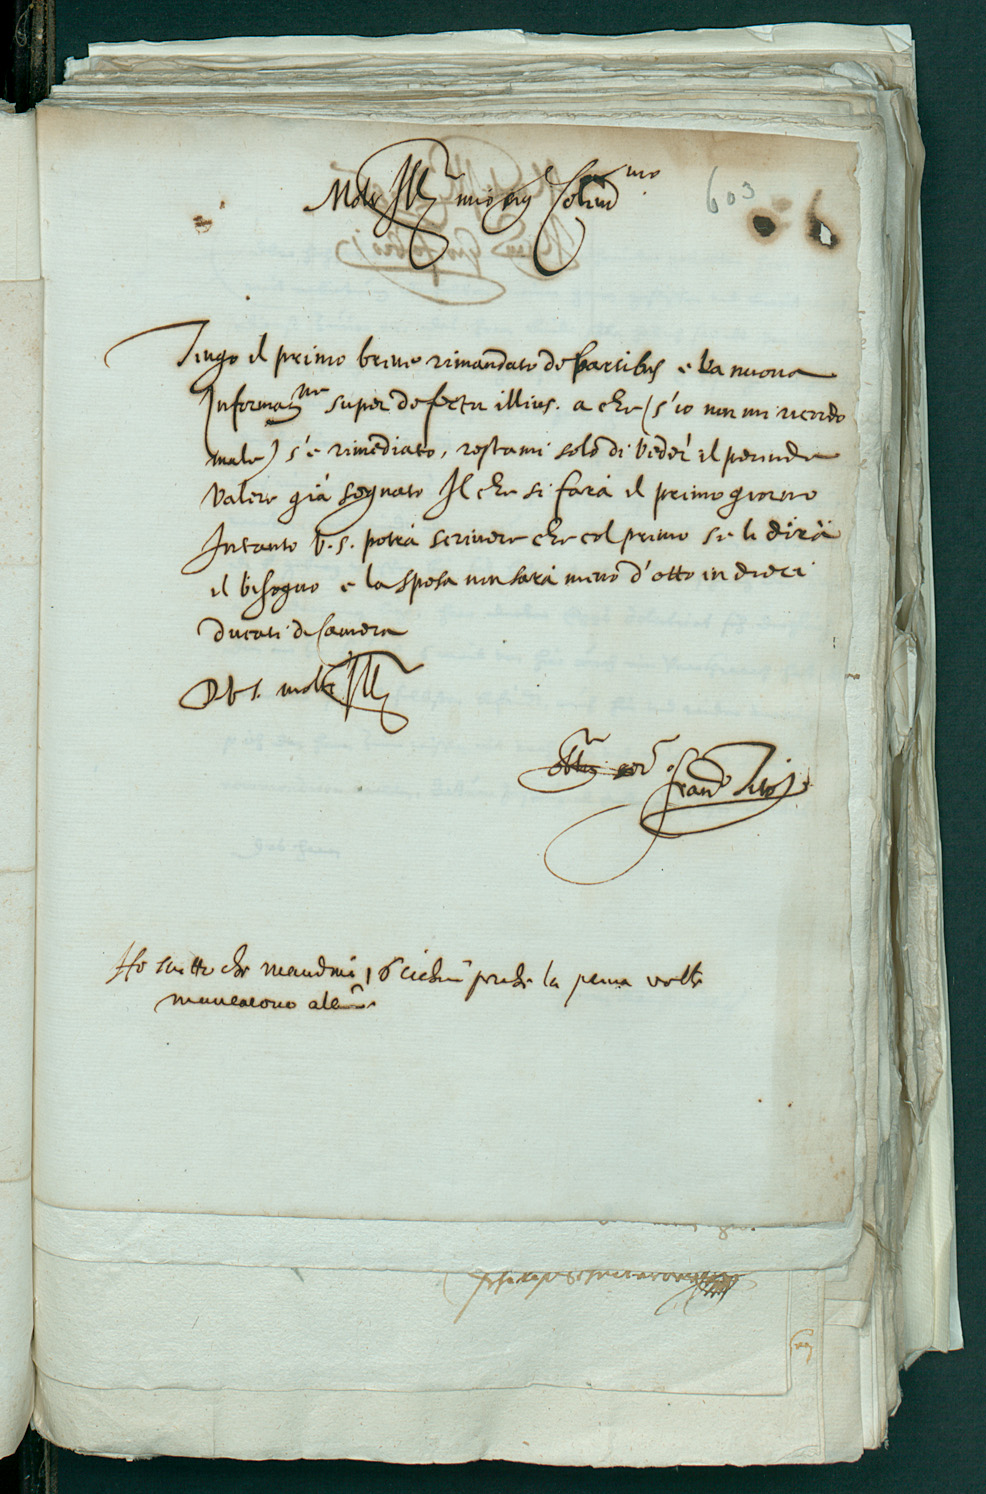 Molto Ill.re mio sig.r Colend.mo
603
Tengo il primo breve rimandato de partibus e la nuova
Informaz.ne super defectu illius. a che (s'io non mi ricordo
male) s'è rimediato, restami solo di veder il perinde
valere già segnato Il che si farà il primo giorno
Intanto V.S. potrà scrivere che col primo se li dirà
il bisogno e la spesa non sarà meno d'otto in dieci
ducati di Camera
D V S. molto Ill.re
ser.re
Fran.o
Ho scritto che mandino 16 perche la prima volta
mancarono